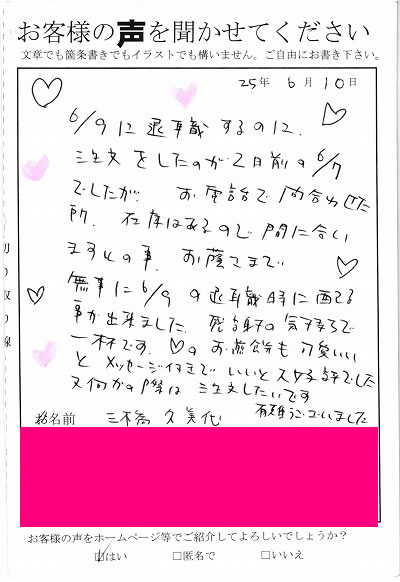 お客様の声を聞かせてください
文章でも箇条書きでもイラストでも構いません。ご自由にお書き下さい。
25年 6月10日
6/9に退職するのに、
注文をしたのが2日前の6/7
でしたが、お電話で問合わせた
所、在庫はあるので間に合い
ますとの事、お蔭さまで
無事に6/9の退職時に配る
事が出来ました。感謝の気持ちで
一杯です。♡のお煎餅も可愛いい
とメッセージ付きでいいと大好評でした
又何かの際は注文したいです
有難うございました
お名前 三橋久美代
切り取り線
お客様の声をホームページ等でご紹介してよろしいでしょうか?
☑はい □匿名で □いいえ